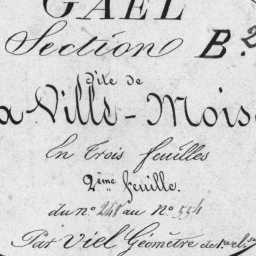 GAEL
Section B.2
Dite de
a-Ville-Mois
En Trois feuilles
2ème feuille.
du n° 248 au N° 554
Par Viel Géomètre de 1ère